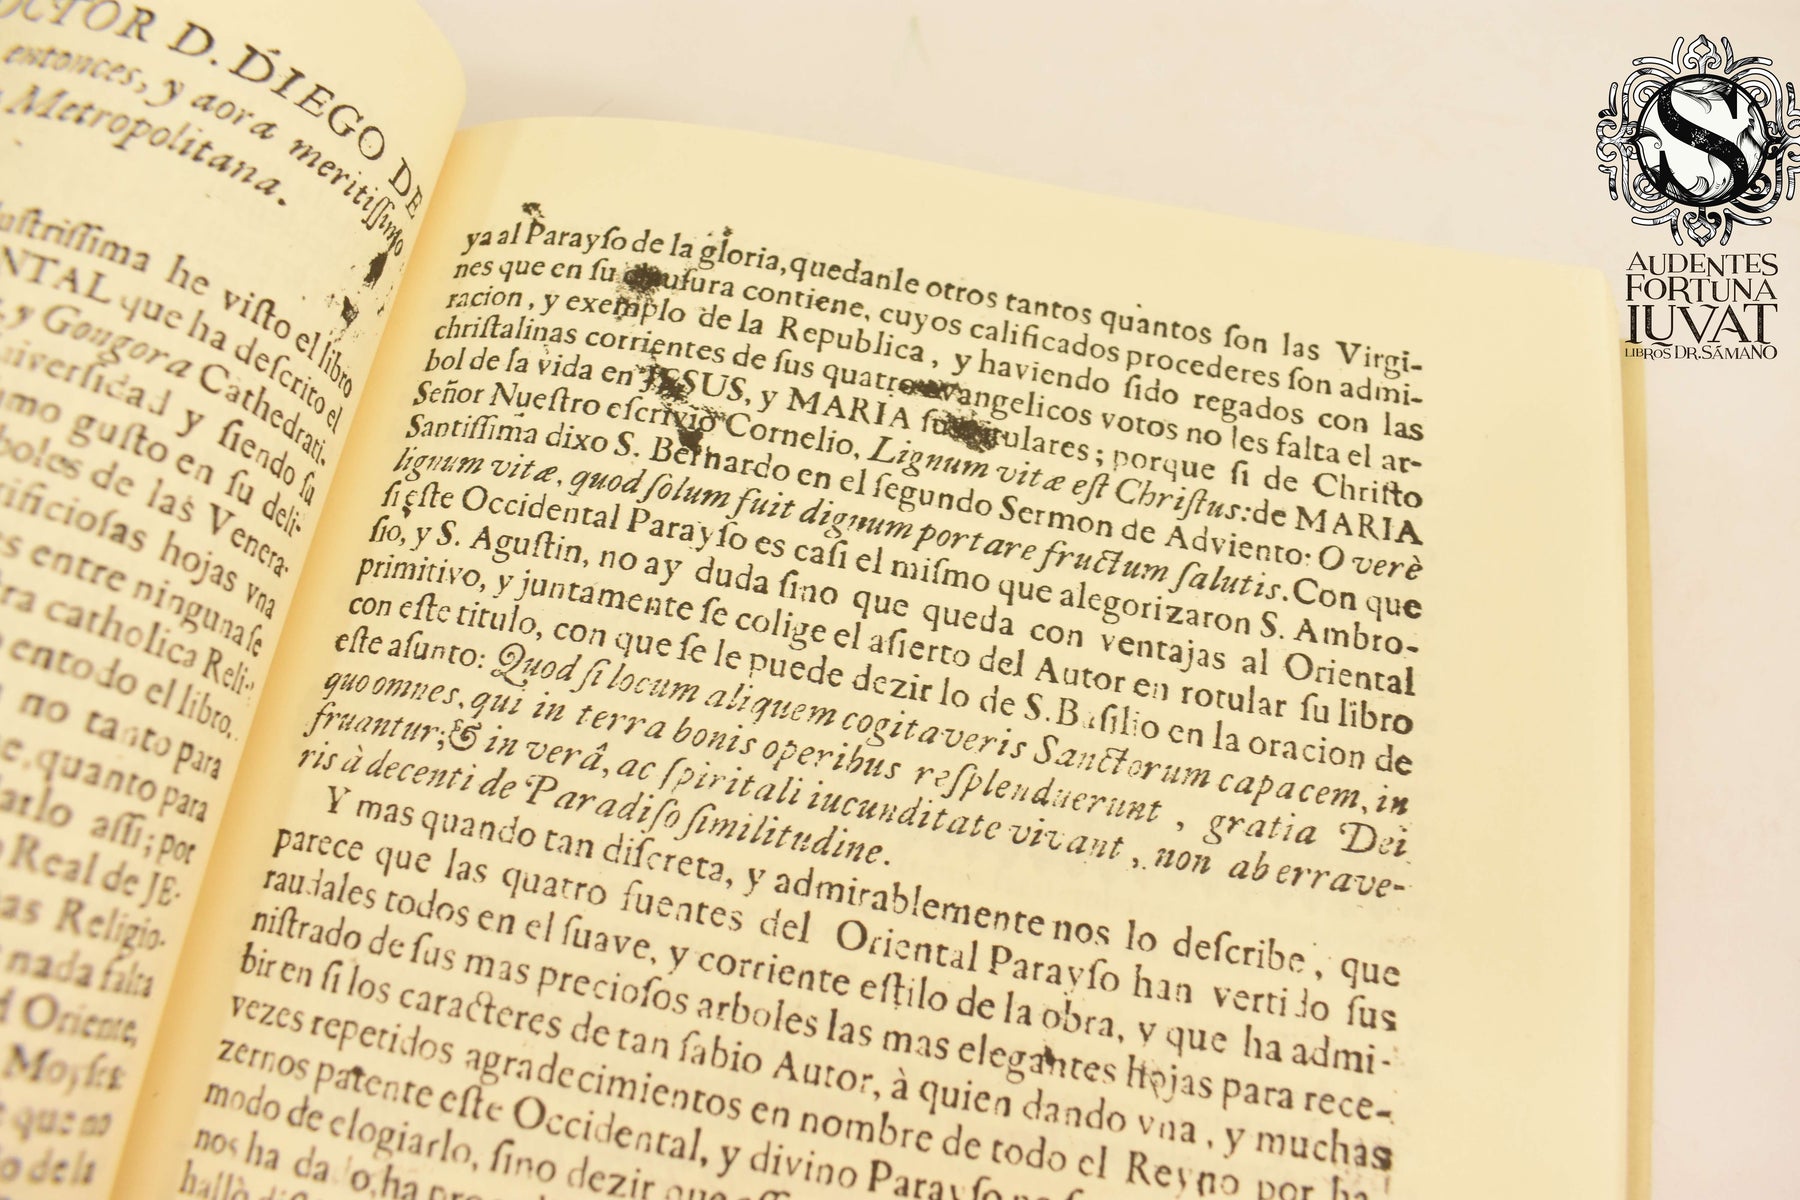 OCTOR D. DIEGO DE
entonces, y aora meritiſſimo
Metropolitana.
luſtriſſima he viſto el libro
NTAL que ha deſcrito el
, y Gongora Cathedrati-
niverſidad y ſiendo ſu
umo guſto en ſu deli-
boles de las Venera-
rificioſas hojas vna
s entre ninguna ſe
tra catholica Reli-
entodo el libro,
no tanto para
e, quanto para
arlo aſſi; por
Real de JE-
as Religio-
nada falta
d Oriente,
Moyſes
que no
o de la
ya al Parayſo de la gloria, quedanle otros tantos quantos ſon las Virgi-
nes que en ſu clauſura contiene, cuyos calificados procederes ſon admi-
racion, y exemplo de la Republica, y haviendo ſido regados con las
chriſtalinas corrientes de ſus quatro evangelicos votos no les falta el ar-
bol de la vida en JESUS, y MARIA ſus titulares; porque ſi de Chriſto
Señor Nueſtro eſcrivió Cornelio, Lignum vitæ eſt Chriſtus: de MARIA
Santiſſima dixo S. Bernardo en el ſegundo Sermon de Adviento: O verè
lignum vitæ, quod ſolum fuit dignum portare fructum ſalutis. Con que
ſi eſte Occidental Parayſo es caſi el miſmo que alegorizaron S. Ambro-
ſio, y S. Aguſtin, no ay duda ſino que queda con ventajas al Oriental
primitivo, y juntamente ſe colige el aſierto del Autor en rotular ſu libro
con eſte titulo, con que ſe le puede dezir lo de S. Baſilio en la oracion de
eſte aſunto: Quod ſi locum aliquem cogitaveris Sanctorum capacem, in
quo omnes, qui in terra bonis operibus reſplenduerunt, gratia Dei
fruantur; & in verâ, ac ſpiritali iucunditate vivant, non aberrave-
ris à decenti de Paradiſo ſimilitudine.
Y mas quando tan diſcreta, y admirablemente nos lo deſcribe, que
parece que las quatro fuentes del Oriental Parayſo han vertido ſus
raudales todos en el ſuave, y corriente eſtilo de la obra, y que ha admi-
niſtrado de ſus mas precioſos arboles las mas elegantes hojas para rece-
bir en ſi los caracteres de tan ſabio Autor, à quien dando vna, y muchas
vezes repetidos agradecimientos en nombre de todo el Reyno por ha-
zernos patente eſte Occidental, y divino Parayſo no
modo de elogiarlo, ſino dezir que
nos ha dado, ha
hallò
S
AUDENTES
FORTUNA
IUVAT
LIBROS DR. SÁMANO